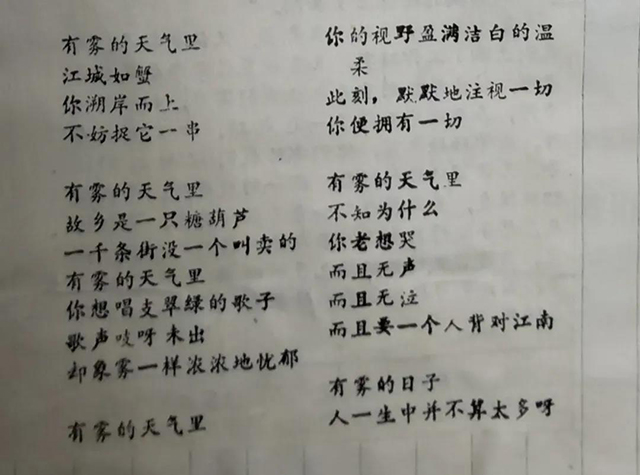 有雾的天气里
江城如蟹
你溯岸而上
不妨捉它一串
有雾的天气里
故乡是一只糖葫芦
一千条街没一个叫卖的
有雾的天气里
你想唱支翠绿的歌子
歌声吱呀未出
却象雾一样浓浓地忧郁
有雾的天气里
你的视野盈满洁白的温
柔
此刻，默默地注视一切
你便拥有一切
有雾的天气里
不知为什么
你老想哭
而且无声
而且无泣
而且要一个人背对江南
有雾的日子
人一生中并不算太多呀